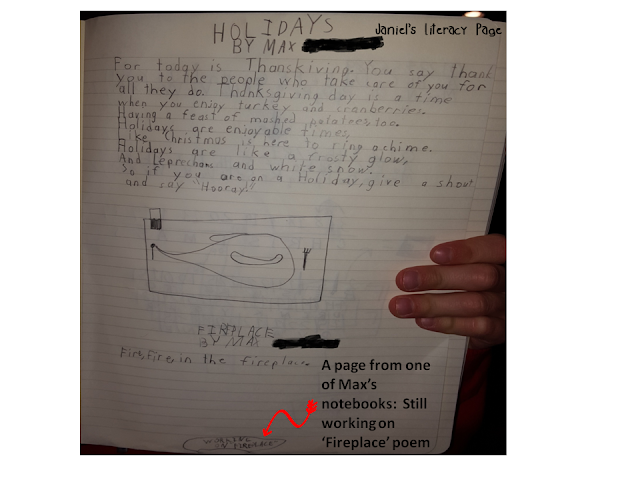 HOLIDAYS
BY MAX
Janiel's Literacy Page
For today is Thanskiving. You say thank
you to the people who take care of you for
all they do. Thanksgiving day is a time
when you enjoy turkey and cranberries.
Having a feast of mashed potatees, too.
Holidays are enjoyable times,
like Christmas is here to ring a chime.
Holidays are like a frosty glow,
And Leprechan and white snow.
So if you are on a Holiday, give a shout
and say "Hooray!"
FIREPLACE
BY MAX
Fire, Fire, in the fireplace
A page from one
of Max's
notebooks: Still
working on
'Fireplace' poem
WORKING
ON FIREPLACE